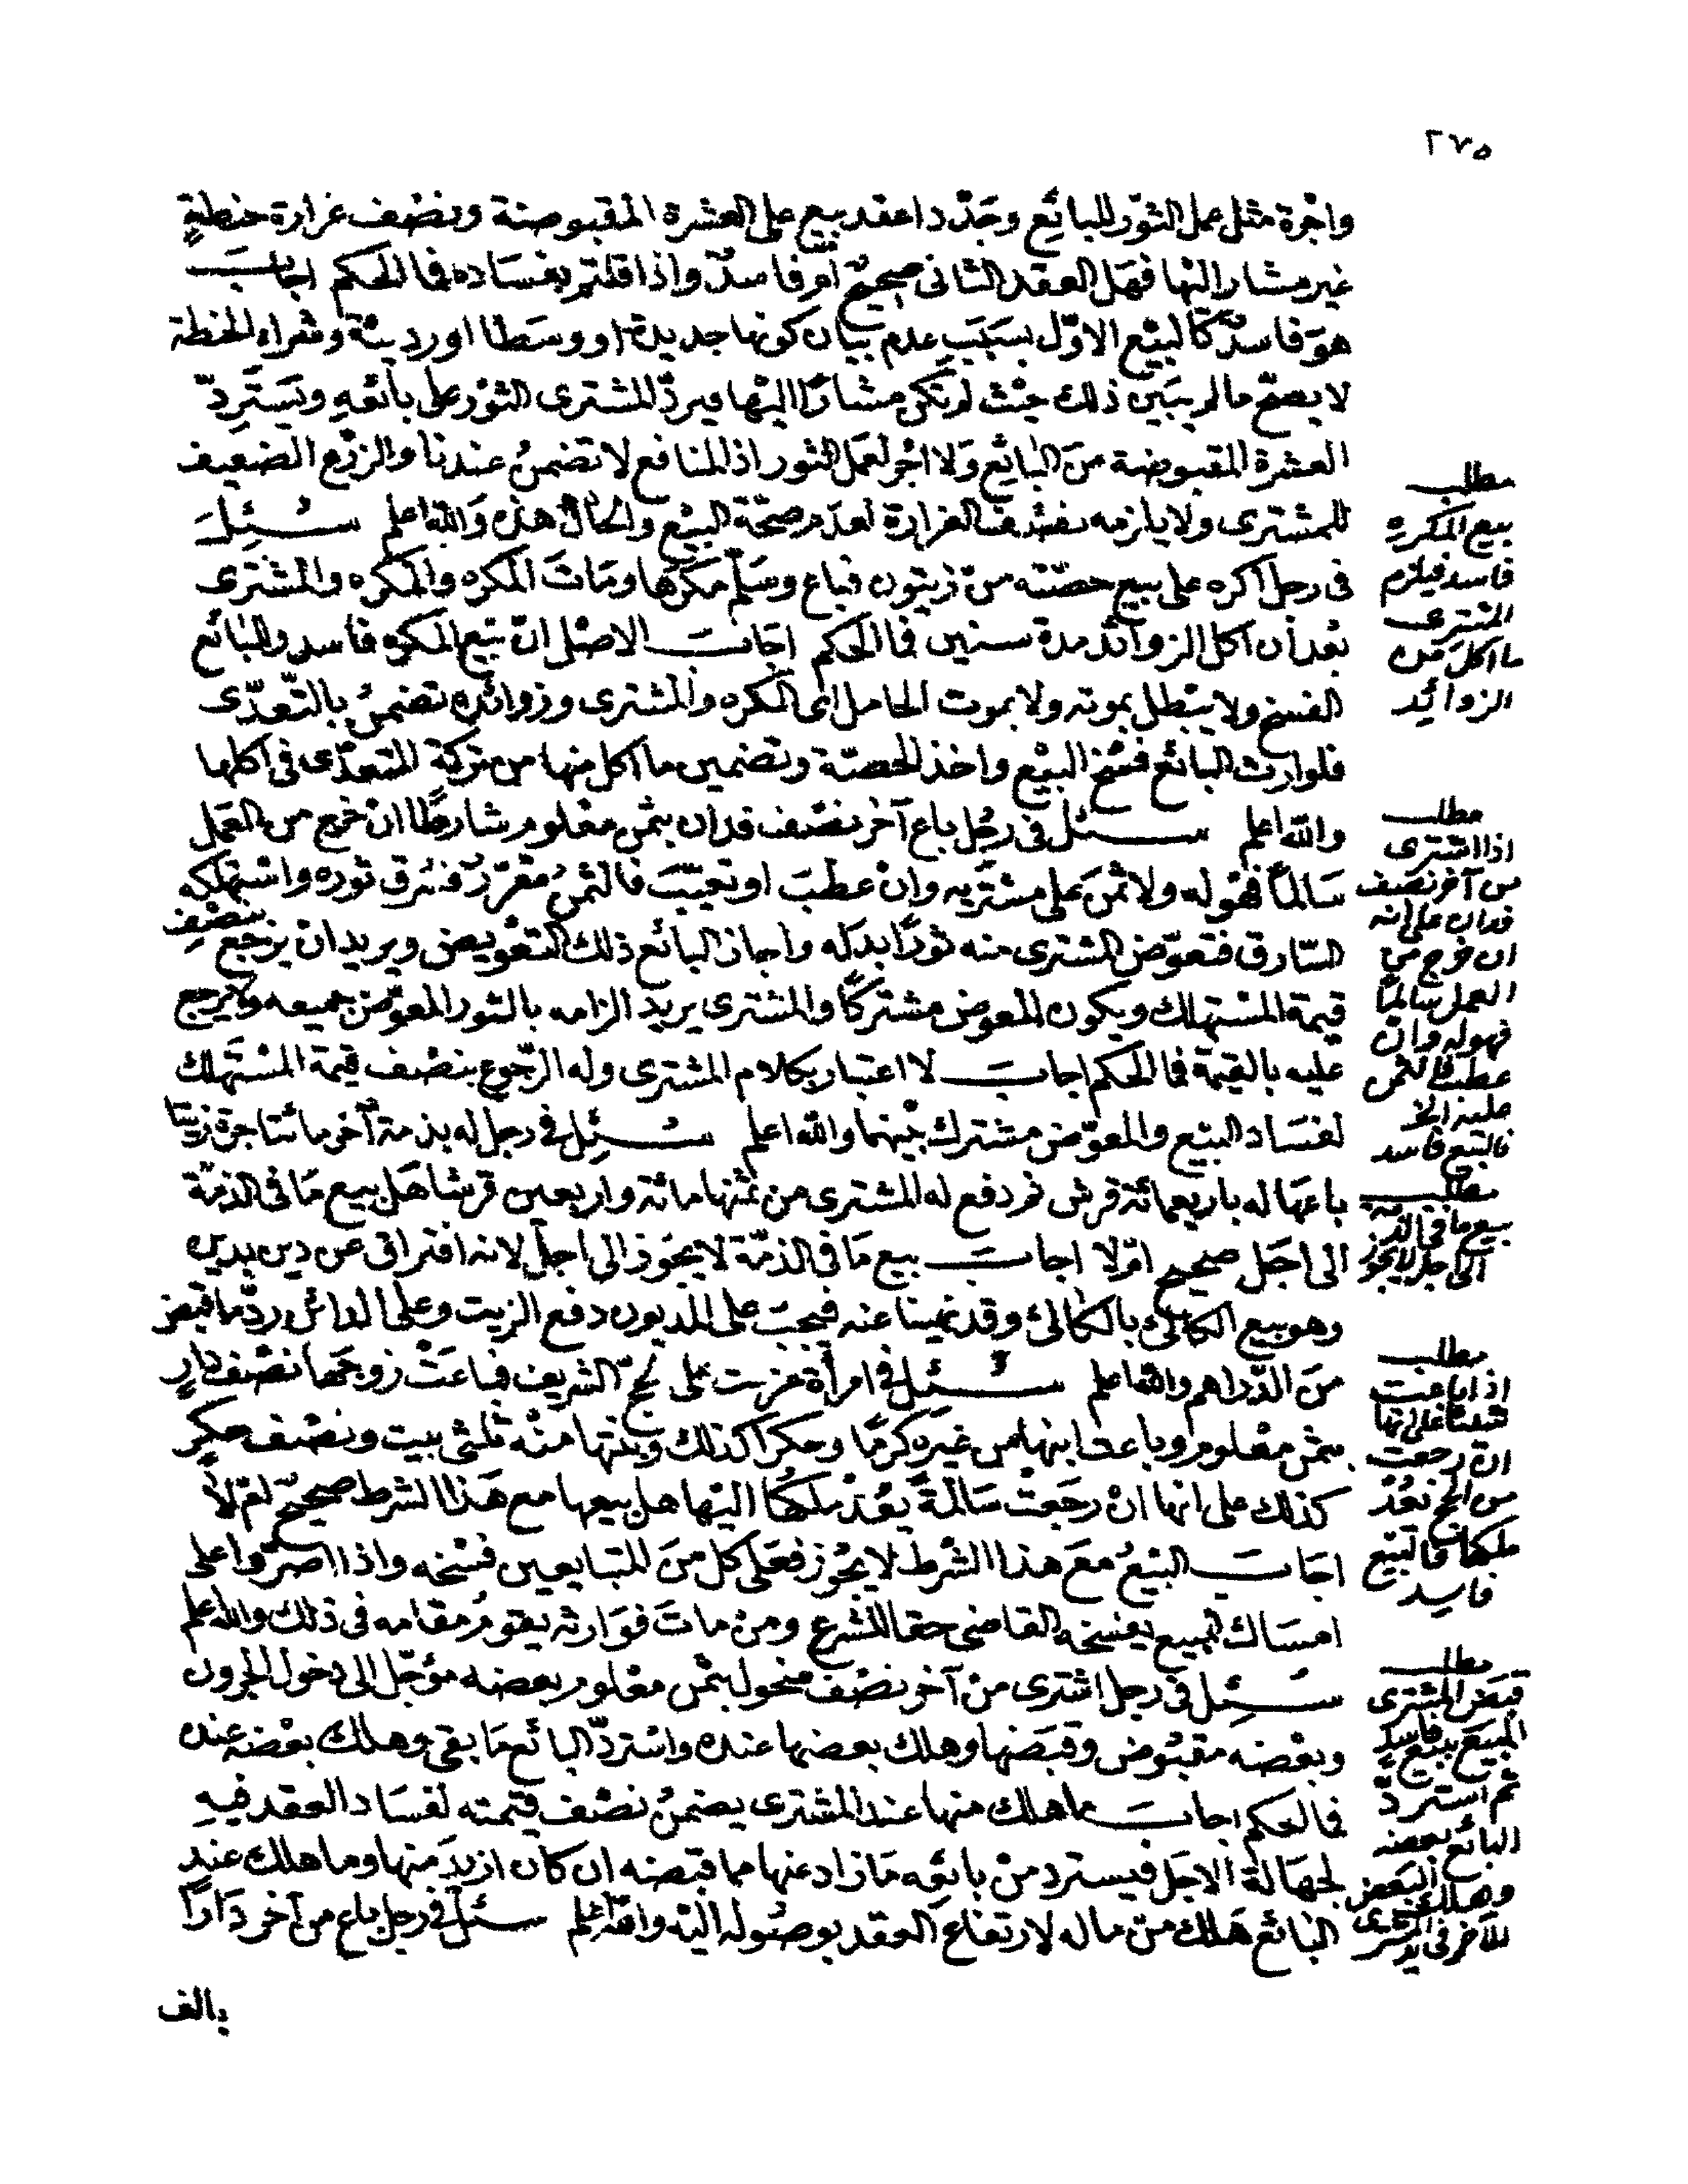 ٢٧٥
واجرة مثل عمل الثور للبائع وجدّدا عقد بيع على العشرة المقبوضة ونصف غرارة حنطةٍ
غير مشار اليها فهل العقد الثانى صحيح أم فاسد واذا قلتم بفساده فما الحكم اجاب
هو فاسد كالبيع الاوّل بسبب عدم بيان كونها جديدة او وسطا او رديئة وشراء الحنطة
لا يصح ما لم يبين ذلك حيث لم تكن مشارًا اليها فيردّ المشترى الثور على بائعه ويستردّ
العشرة المقبوضة من البائع ولا اجر لعمل الثور اذ المنافع لا تضمن عندنا والزرع الضعيف
للمشترى ولا يلزمه نصف الغرارة لعدم صحّة البيع والحال هذه والله اعلم سئل
فى رجل اكره على بيع حصّته من زيتون فباع وسلّم مكرها ومات المكرِه والمكرَه والمشترى
بعد ان اكل الزوائد مدة سنين فما الحكم اجاب الاصل ان بيع المكره فاسد وللبائع
الفسخ ولا يبطل بموته ولا بموت الحامل اى المكره والمشترى وزوائده تضمن بالتعدّى
فلوارث البائع فسخ البيع واخذ الحصّة وتضمين ما اكل منها من تركة المتعدّى فى اكلها
والله اعلم سئل فى رجل باع آخر نصف فدان بثمن معلوم شارطًا ان خرج من العمل
سالمًا فهو له ولا ثمن على مشتريه وان عطب او تعيّب فالثمن مقرّر فسرق ثوره واستهلكه
السّارق فتعوّض المشترى منه ثورًا بدله واجاز البائع ذلك التعويض ويريد ان يرجع بنصف
قيمة المستهلك ويكون المعوض مشتركًا والمشترى يريد الزامه بالثور المعوّض جميعه ولا يرجع
عليه بالقيمة فما الحكم اجاب لا اعتبار بكلام المشترى وله الرّجوع بنصف قيمة المستهلك
لفساد البيع والمعوّض مشترك بينهما والله اعلم سئل فى رجل له بذمة آخر مائتا جرة زيتا
باعها له باربعمائة قرش ثم دفع له المشترى من ثمنها مائة واربعين قرشا هل بيع ما فى الذمّة
الى اجل صحيح ام لا اجاب بيع ما فى الذمّة لا يجوز الى اجل لانه افتراق عن دين بدين
وهو بيع الكالئ بالكالئ وقد نهينا عنه فيجب على المديون دفع الزيت وعلى الدائن ردّ ما قبض
من الدّراهم والله اعلم سئل فى امرأة عزمت على حجّ الشريف فباعت زوجها نصف دارٍ
بثمن معلوم وباعت ابنها من غيره كرمًا وحكرًا كذلك وبنتها منه ثلثى بيت ونصف حكرٍ
كذلك على انها ان رجعت سالمةً يعد ملكها اليها هل بيعها مع هذا الشرط صحيح ام لا
اجاب البيع مع هذا الشرط لا يجوز فعلى كل من المتبايعين فسخه واذا اصرّوا على
امساك المبيع يفسخه القاضى حقا للشرع ومن مات فوارثه يقوم مقامه فى ذلك والله اعلم
سئل فى رجل اشترى من آخر نصف نحول بثمن معلوم بعضه مؤجّل الى دخول الجرون
وبعضه مقبوض وقبضها وهلك بعضها عنده واستردّ البائع ما بقى وهلك بعضه عنده
فما الحكم اجاب ما هلك منها عند المشترى يضمن نصف قيمته لفساد العقد فيه
لجهالة الاجل فيسترد من بائعه ما زاد عنها مما قبضه ان كان ازيد منها وما هلك عند
البائع هلك من ماله لارتفاع العقد بوصوله اليه والله اعلم سئل فى رجل باع من آخر دارًا
بالف
مطلب
بيع المكره
فاسد فيلزم
المشترى
ما اكل من
الزوائد
مطلب
اذا اشترى
من آخر نصف
فدان على انه
ان خرج من
العمل سالمًا
فهو له وان
عطب فالثمن
عليه الخ
فالبيع فاسد
مطلب
بيع ما فى الذمة
الى اجل لا يجوز
مطلب
اذا باعت
شيئا على انها
ان رجعت
من الحج بعد
ملكها فالبيع
فاسد
مطلب
قبض المشترى
المبيع ببيع فاسد
ثم استردّ
البائع بعضه
وهلك البعض
الآخر فى يد المشترى